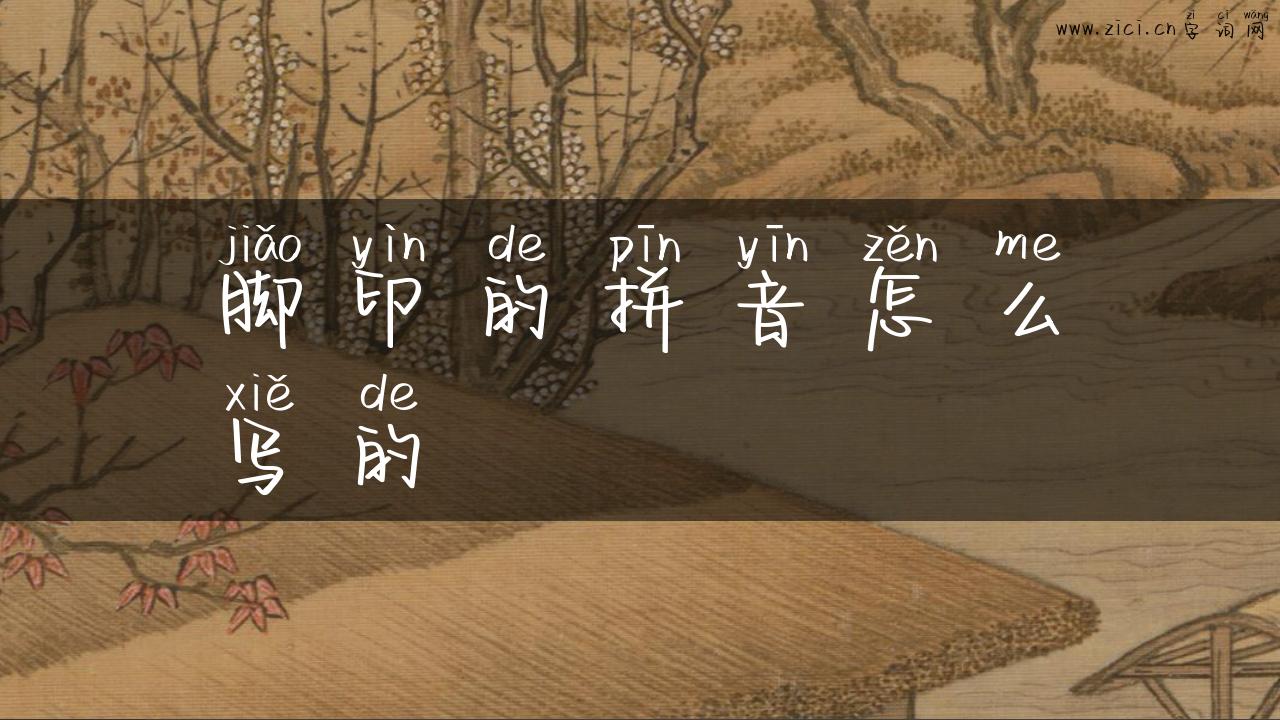 zì cí wǎng
www.zici.cn 字词网
jiǎo yìn de pīn yīn zěn me
脚印的拼音怎么
xiě de
写的